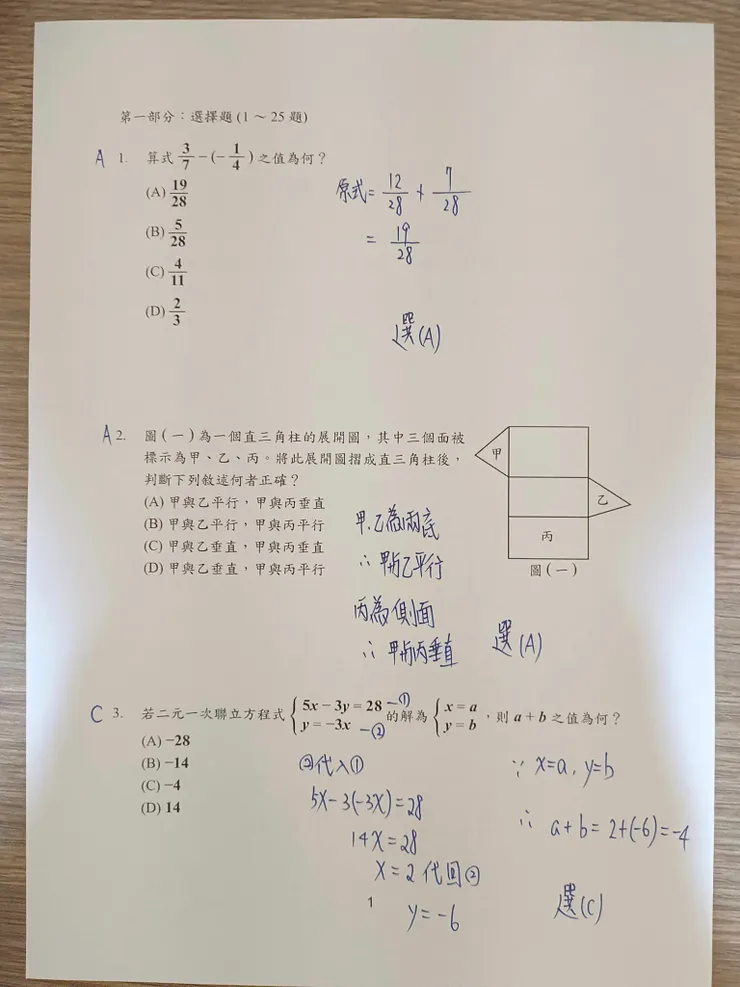 第一部分：選擇題 (1 ~ 25 題)
A 1. 算式 3/7 − (− 1/4) 之值為何？
(A) 19/28
(B) 5/28
(C) 4/11
(D) 2/3
原式 = 12/28 + 7/28
= 19/28
選(A)
A 2. 圖(一)為一個直三角柱的展開圖，其中三個面被
標示為甲、乙、丙。將此展開圖摺成直三角柱後，
判斷下列敘述何者正確？
(A) 甲與乙平行，甲與丙垂直
(B) 甲與乙平行，甲與丙平行
(C) 甲與乙垂直，甲與丙垂直
(D) 甲與乙垂直，甲與丙平行
甲
乙
丙
圖(一)
甲、乙為兩底
∴ 甲與乙平行
丙為側面
∴ 甲與丙垂直
選(A)
C 3. 若二元一次聯立方程式 { 5x − 3y = 28 —① y = −3x —② 的解為 { x = a y = b ，則 a + b 之值為何？
(A) −28
(B) −14
(C) −4
(D) 14
②代入①
5x−3(−3x)=28
14x=28
x=2 代回②
y=−6
∵ x=a, y=b
∴ a+b=2+(−6)=−4
選(C)
1